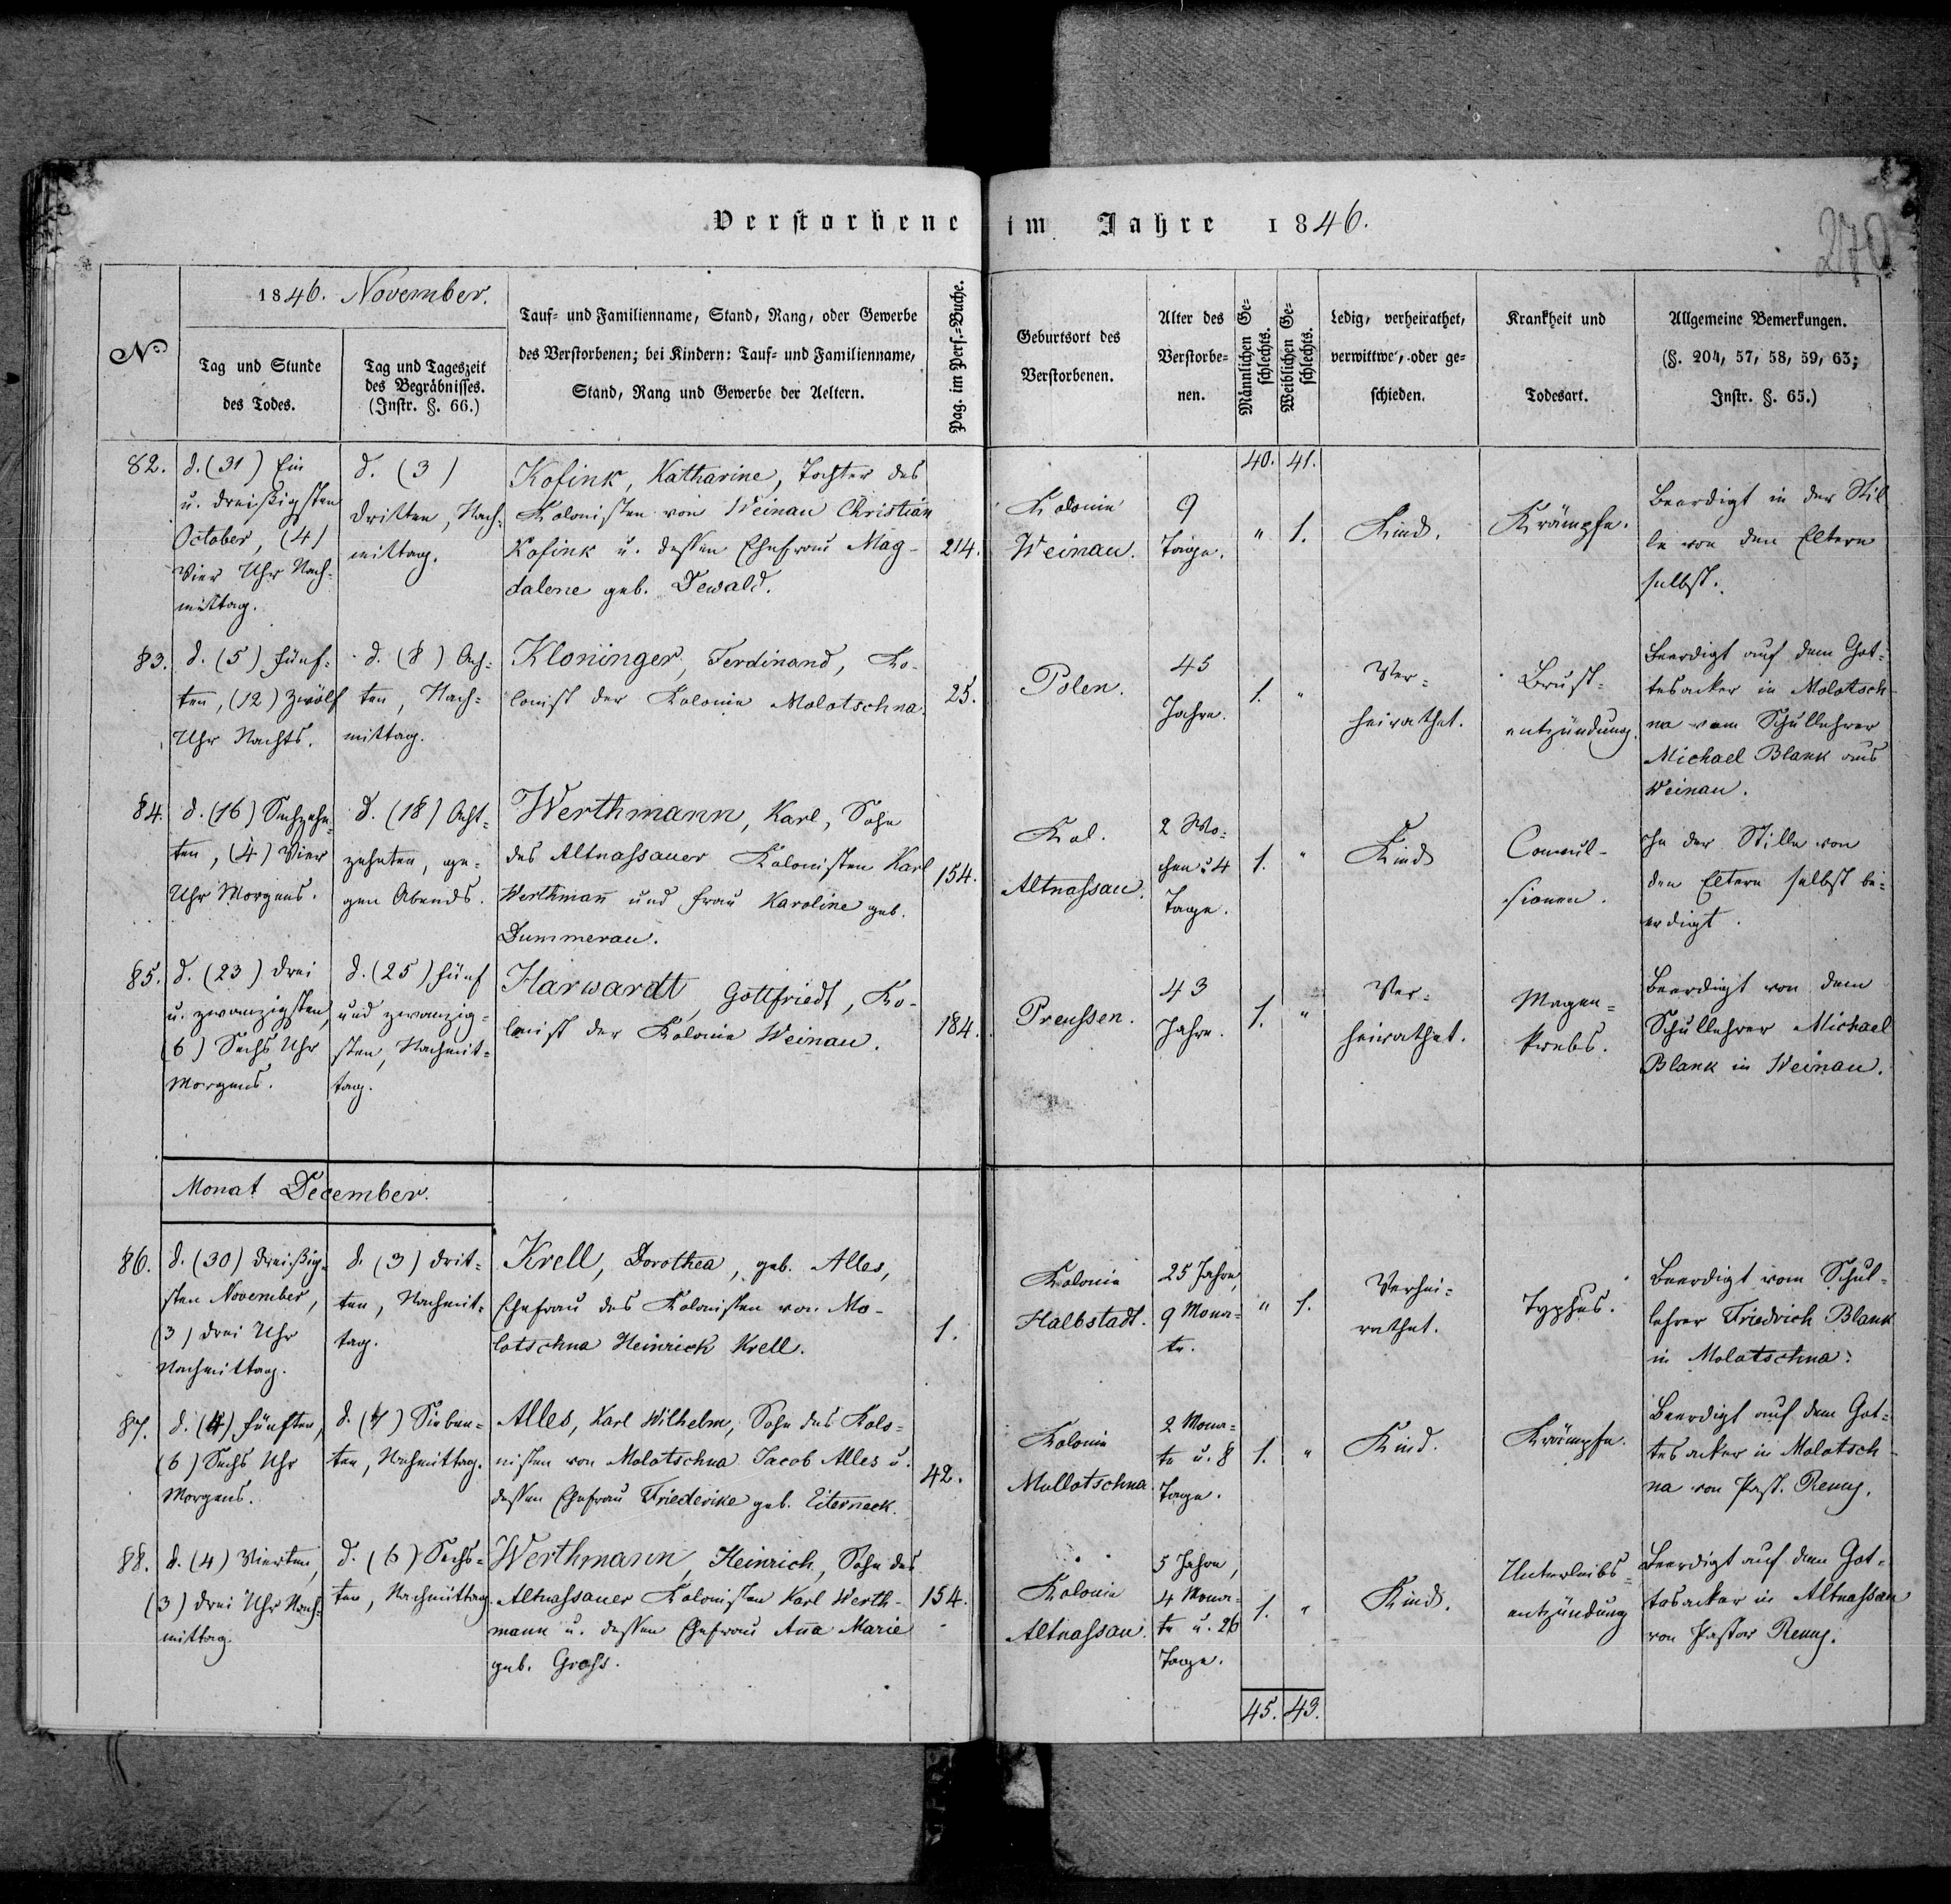 Verstorbene im Jahre 1846.
270
1846. November.
No
Tag und Stunde
des Todes.
Tag und Tageszeit
des Begräbnisses.
(Instr. §. 66.)
Tauf- und Familienname, Stand, Rang, oder Gewerbe
des Verstorbenen; bei Kindern: Tauf- und Familienname,
Stand, Rang und Gewerbe der Aeltern.
Pag. im Pers.-Buche.
Geburtsort des
Verstorbenen.
Alter des
Verstorbe-
nen.
Männlichen Ge-
schlechts.
Weiblichen Ge-
schlechts.
Ledig, verheirathet,
verwittwe, oder ge-
schieden.
Krankheit und
Todesart.
Allgemeine Bemerkungen.
(§. 204, 57, 58, 59, 63;
Instr. §. 65.)
40. 41.
82.
d. (31) Ein
u. dreißigsten
October, (4)
Vier Uhr Nach-
mittag.
d. (3)
dritten, Nach-
mittag.
Kofink, Katharine, Tochter des
Kolonisten von Weinau Christian
Kofink u. dessen Ehefrau Mag-
dalene geb. Dewald.
214.
Kolonie
Weinau.
9
Tage.
" 1.
Kind.
Krämpfe.
Beerdigt in der Stil
le von den Eltern
selbst.
83.
d. (5) Fünf-
ten, (12) Zwölf
Uhr Nachts.
d. (8) Ach-
ten, Nach-
mittag.
Kloninger, Ferdinand, Ko-
lonist der Kolonie Molotschna.
25.
Polen.
45
Jahre.
1. "
Ver-
heirathet.
Brust-
entzündung.
Beerdigt auf dem Got-
tesacker in Molotsch-
na vom Schullehrer
Michael Blank aus
Weinau.
84.
d. (16) Sechzehn-
ten, (4) Vier
Uhr Morgens.
d. (18) Acht-
zehnten, ge-
gen Abends.
Werthmann, Karl, Sohn
des Altnassauer Kolonisten Karl
Werthmañ und Frau Karoline geb.
Dummerau.
154.
Kol.
Altnassau.
2 Wo-
chen u 4
Tage.
1. "
Kind
Convul-
sionen.
In der Stille von
den Eltern selbst be-
erdigt.
85.
d. (23) Drei
u. zwanzigsten,
(6) Sechs Uhr
Morgens.
d. (25) Fünf
und zwanzig-
sten, Nachmit-
tag.
Harwardt, Gottfriedt, Ko-
lonist der Kolonie Weinau.
184.
Preussen.
43
Jahre.
1. "
Ver-
heirathet.
Magen-
krebs.
Beerdigt von dem
Schullehrer Michael
Blank in Weinau.
Monat December.
86.
d. (30) Dreißig-
sten November,
(3) Drei Uhr
Nachmittag.
d. (3) Drit-
ten, Nachmit-
tag.
Krell, Dorothea, geb. Alles,
Ehefrau des Kolonisten von Mo-
lotschna Heinrick Krell.
1.
Kolonie
Halbstadt.
25 Jahre,
9 Mona-
te.
" 1.
Verhei-
rathet.
Typhus.
Beerdigt vom Schul-
lehrer Friedrich Blank
in Molotschna.
87.
d. (4) Fünften,
(6) Sechs Uhr
Morgens.
d. (7) Sieben-
ten, Nachmittag.
Alles, Karl Wilhelm, Sohn des Kolo-
nisten von Molotschna Jacob Alles u.
dessen Ehefrau Friederike geb. Eiterneck.
42.
Kolonie
Mollotschna.
2 Mona-
te u. 8
Tage.
1. "
Kind.
Krämpfe.
Beerdigt auf dem Got-
tesacker in Molotsch-
na von Past. Remy.
88.
d. (4) Vierten,
(3) Drei Uhr Nach-
mittag.
d. (6) Sechs-
ten, Nachmittag.
Werthmann, Heinrich, Sohn des
Altnassauer Kolonisten Karl Werth-
mann u. dessen Ehefrau Aña Marie
geb. Gross.
154.
Kolonie
Altnassau.
5 Jahre,
4 Mona-
te u. 26
Tage.
1. "
Kind.
Unterleibs-
entzündung
Beerdigt auf dem Got-
tesacker in Altnassau
von Pastor Remy.
45. 43.